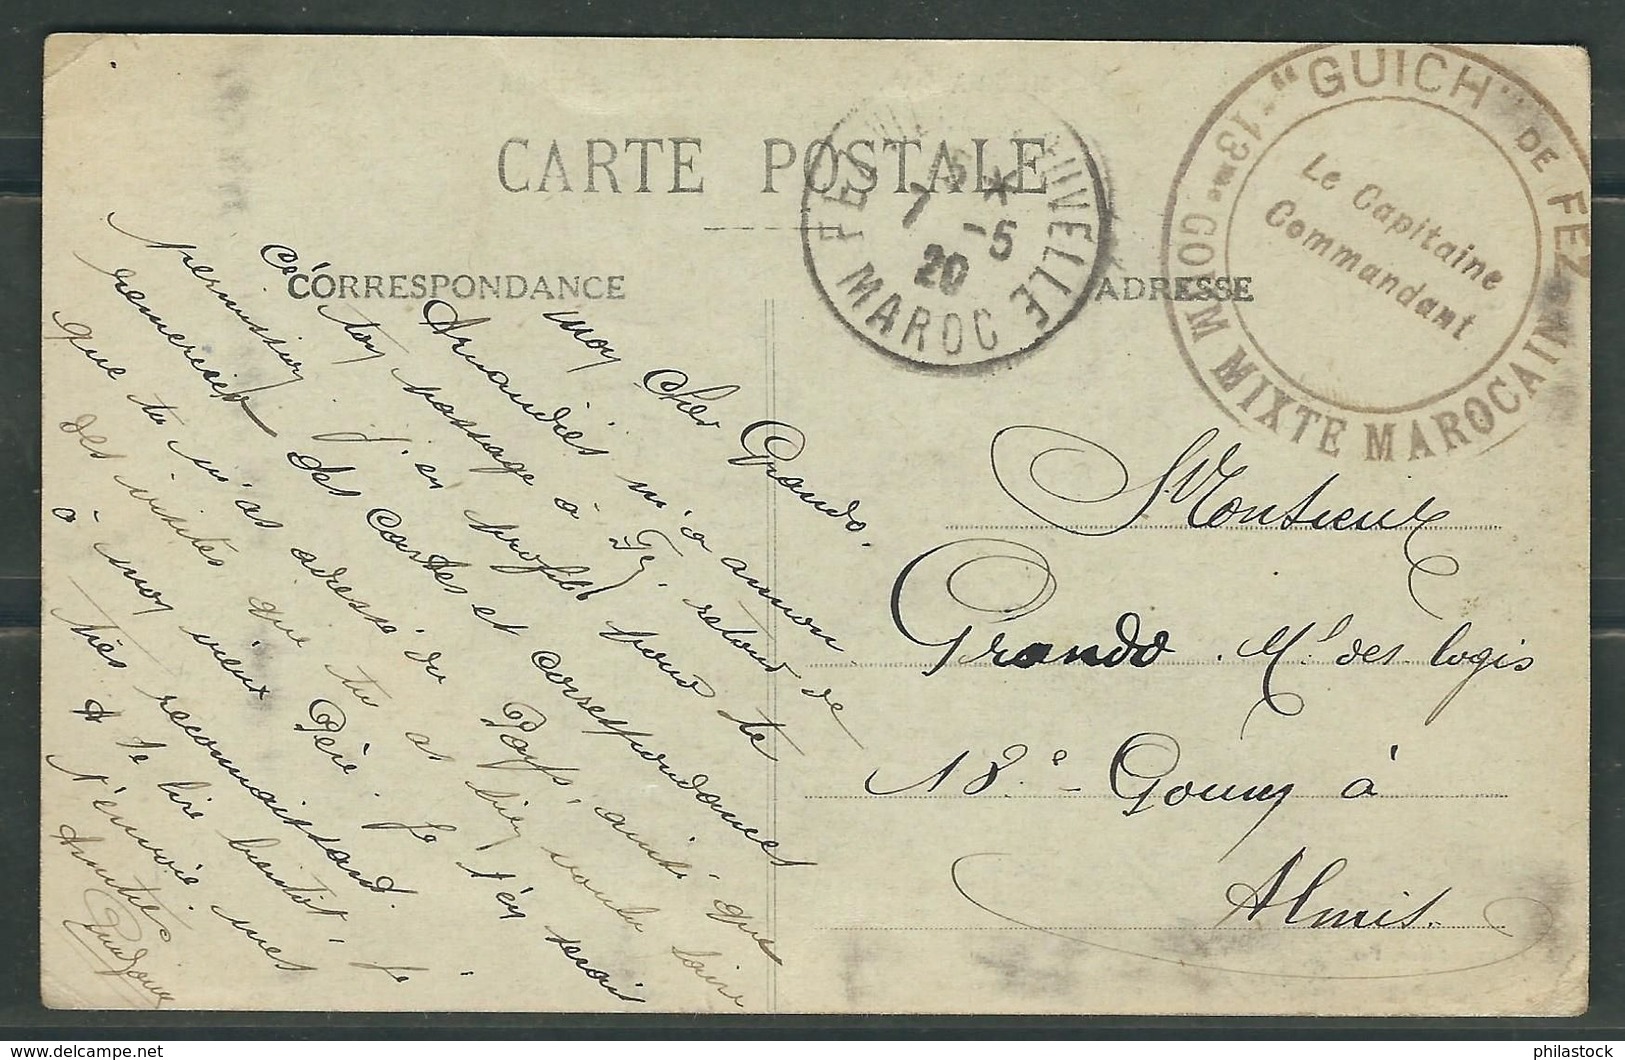 CARTE POSTALE
CORRESPONDANCE
ADRESSE
FEZ VILLE NOUVELLE
5 *
7 -5
20
MAROC
"GUICH" DE FEZ
13me GOUM MIXTE MAROCAIN
Le Capitaine
Commandant
Mon cher Grando.
Amandies m'a annon
cé ton passage à Fez retour de
permission. J'en profite pour te
remercier des cartes et correspondances
que tu m'as adressé du Pays, ainsi que
des visites que tu as bien voulu faire
à mon vieux Père. Je t'en serais
très reconnaissant.
A te lire bientôt. Je
t'envoie mes
Amitiés
Monsieur
Grando. Mal des logis
18e Goum à
Almis.
philastock
delcampe.net